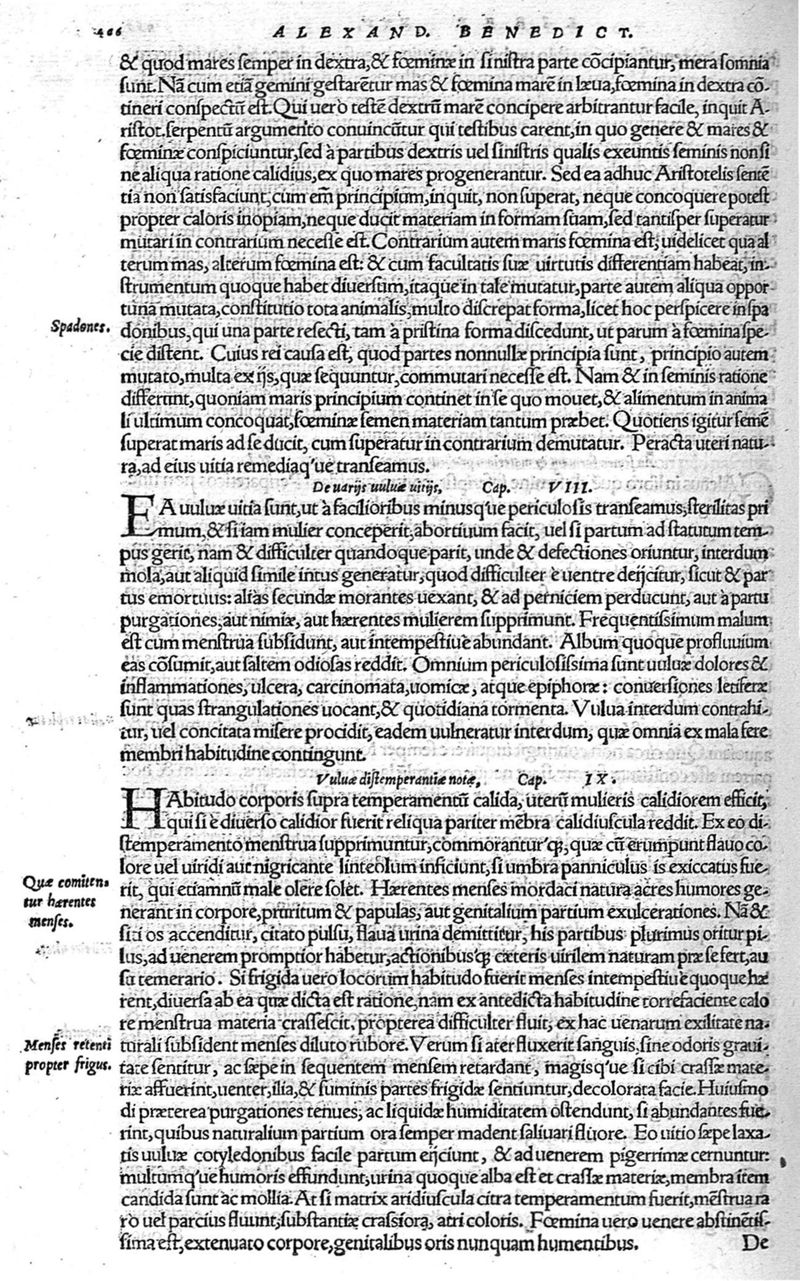 406 ALEXAND. BENEDICT.
& quod mares ſemper in dextra, & fœminæ in ſiniſtra parte cōcipiantur, mera ſomnia
ſunt. Nā cum etiā gemini geſtarētur mas & fœmina marē in læua, fœmina in dextra cō-
tineri conſpectū eſt. Qui uero teſtē dextrū marē concipere arbitrantur facile, inquit A-
riſtot. ſerpentū argumento conuincūtur qui teſtibus carent, in quo genere & mares &
fœminæ conſpiciuntur, ſed à partibus dextris uel ſiniſtris qualis exeuntis ſeminis non ſi
ne aliqua ratione calidius, ex quo mares progenerantur. Sed ea adhuc Ariſtotelis ſentē
tia non ſatisfaciunt, cum em̄ principium, inquit, non ſuperat, neque concoquere poteſt
propter caloris inopiam, neque ducit materiam in formam ſuam, ſed tantiſper ſuperatur
mutari in contrarium neceſſe eſt. Contrarium autem maris fœmina eſt, uidelicet qua al
terum mas, alterum fœmina eſt: & cum facultatis ſuæ uirtutis differentiam habeat, in-
ſtrumentum quoque habet diuerſum, itaque in tale mutatur, parte autem aliqua oppor
tuna mutata, conſtitutio tota animalis, multo diſcrepat forma, licet hoc perſpicere in ſpa
Spadones.
donibus, qui una parte reſecti, tam à priſtina forma diſcedunt, ut parum à fœmina ſpe-
cie diſtent. Cuius rei cauſa eſt, quod partes nonnullæ principia ſunt, principio autem
mutato, multa ex ijs, quæ ſequuntur, commutari neceſſe eſt. Nam & in ſeminis ratione
differunt, quoniam maris principium continet in ſe quo mouet, & alimentum in anima
li ultimum concoquat, fœminæ ſemen materiam tantum præbet. Quotiens igitur ſemē
ſuperat maris ad ſe ducit, cum ſuperatur in contrarium demutatur. Peracta uteri natu-
ra, ad eius uitia remediaq́ue tranſeamus.
De uarijs uuluæ uitijs, Cap. VIII.
EA uuluæ uitia ſunt, ut à facilioribus minusq́ue periculoſis tranſeamus, ſterilitas pri
mum, & ſi iam mulier conceperit, abortiuum facit, uel ſi partum ad ſtatutum tem-
pus gerit, nam & difficulter quandoque parit, unde & defectiones oriuntur, interdum
mola, aut aliquid ſimile intus generatur, quod difficulter è uentre deijcitur, ſicut & par
tus emortuus: aliàs ſecundæ morantes uexant, & ad perniciem perducunt, aut à partu
purgationes, aut nimiæ, aut hærentes mulierem ſupprimunt. Frequentiſſimum malum
eſt cum menſtrua ſubſidunt, aut intempeſtiue abundant. Album quoque profluuium
eas cōſumit, aut ſaltem odioſas reddit. Omnium periculoſiſſima ſunt uuluæ dolores &
inflammationes, ulcera, carcinomata, uomicæ, atque epiphoræ: conuerſiones letiferæ
ſunt quas ſtrangulationes uocant, & quotidiana tormenta. Vulua interdum contrahi-
tur, uel concitata miſere procidit, eadem uulneratur interdum, quæ omnia ex mala fere
membri habitudine contingunt.
Vuluæ diſtemperantiæ notæ, Cap. IX.
HAbitudo corporis ſupra temperamentū calida, uterū mulieris calidiorem efficit,
qui ſi è diuerſo calidior fuerit reliqua pariter mēbra calidiuſcula reddit. Ex eo di-
ſtemperamento menſtrua ſupprimuntur, commoranturq́;, quæ cū erumpunt flauo co-
lore uel uiridi aut nigricante linteolum inficiunt, ſi umbra panniculus is exiccatus fue-
Quæ comiten-
tur hærentes
menſes.
rit, qui etiamnū male olere ſolet. Hærentes menſes mordaci natura acres humores ge-
nerant in corpore, pruritum & papulas, aut genitalium partium exulcerationes. Nā &
ſiti os accenditur, citato pulſu, flaua urina demittitur, his partibus plurimus oritur pi-
lus, ad uenerem promptior habetur, actionibusq́; cæteris uirilem naturam præ ſe fert, au
ſu temerario. Si frigida uero locorum habitudo fuerit menſes intempeſtiue quoque hæ
rent, diuerſa ab ea quæ dicta eſt ratione, nam ex antedicta habitudine torrefaciente calo
re menſtrua materia craſſeſcit, propterea difficulter fluit, ex hac uenarum exilitate na-
Menſes retenti
propter frigus.
turali ſubſident menſes diluto rubore. Verum ſi ater fluxerit ſanguis, ſine odoris graui-
tate ſentitur, ac ſæpe in ſequentem menſem retardant, magisq́ue ſi cibi craſſæ mate-
riæ affuerint, uenter, ilia, & ſuminis partes frigidæ ſentiuntur, decolorata facie. Huiuſmo
di præterea purgationes tenues, ac liquidæ humiditatem oſtendunt, ſi abundantes fue-
rint, quibus naturalium partium ora ſemper madent ſaliuari fluore. Eo uitio ſæpe laxa-
tis uuluæ cotyledonibus facile partum eijciunt, & ad uenerem pigerrimæ cernuntur:
multumq́ue humoris effundunt, urina quoque alba eſt et craſſæ materiæ, membra item
candida ſunt ac mollia. At ſi matrix aridiuſcula citra temperamentum fuerit, mēſtrua ra
ro uel parcius fluunt, ſubſtantiæ craſſiora, atri coloris. Fœmina uero uenere abſtinētiſ-
ſima eſt, extenuato corpore, genitalibus oris nunquam humentibus. De